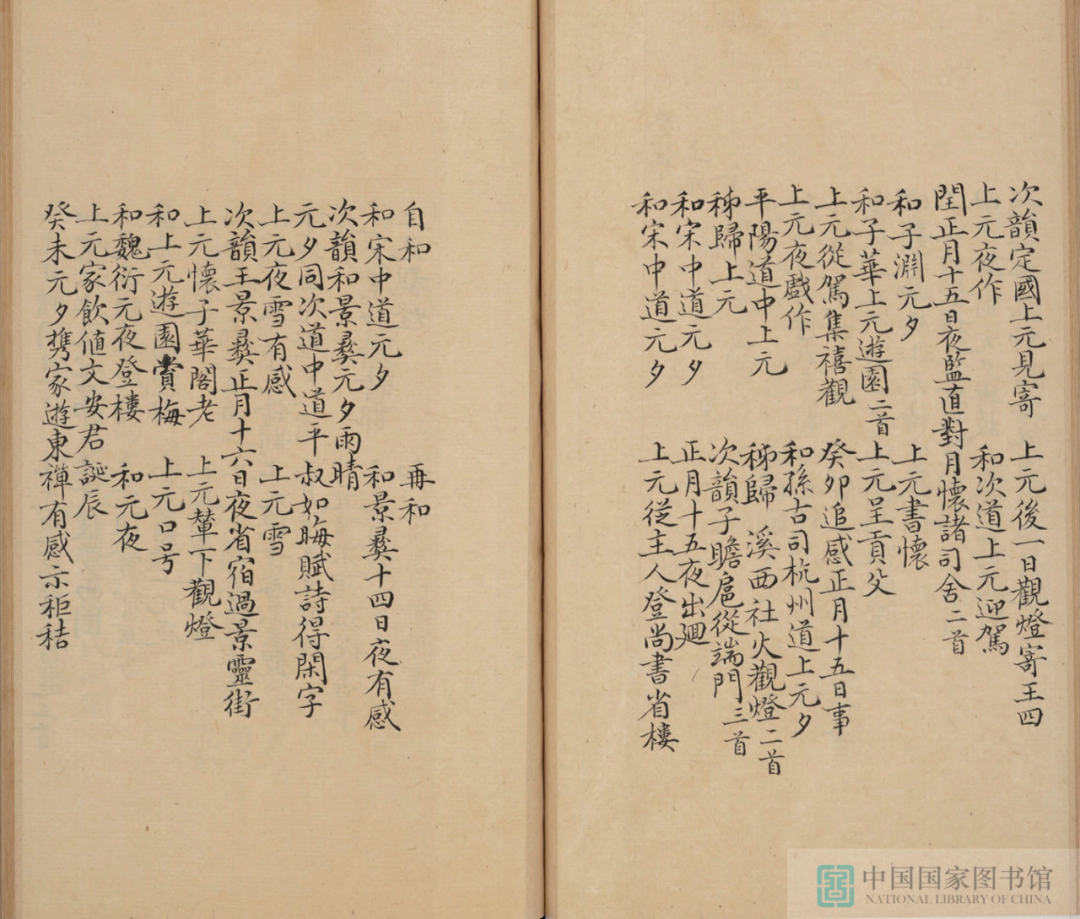 次韻定國上元見寄 上元後一日觀燈寄王四
上元夜作 和次道上元迎駕
閏正月十五日夜監直對月懷諸司舍二首
和子淵元夕 上元書懷
和子華上元遊園二首 上元呈貢父
上元從駕集禧觀 癸卯追感正月十五日事
上元夜戲作 和孫古司杭州道上元夕
平陽道中上元 秭歸 溪西社火觀燈二首
秭歸上元 次韻子瞻扈從端門三首
和宋中道元夕 正月十五夜出廽
和宋中道元夕 上元從主人登尚書省樓
自和 再和
和宋中道元夕 和景彝十四日夜有感
次韻和景彝元夕雨晴
元夕同次道中道平叔如晦賦詩得閑字
上元夜雪有感 上元雪
次韻王景彝正月十六日夜省宿過景靈街
上元懷子華閣老 上元輦下觀燈
和上元遊園賞梅 上元口号
和魏衍元夜登樓 和元夜
上元家飲値文安君誕辰
癸未元夕携家遊東禪有感示秬秸
中国国家图书馆
NATIONAL LIBRARY OF CHINA